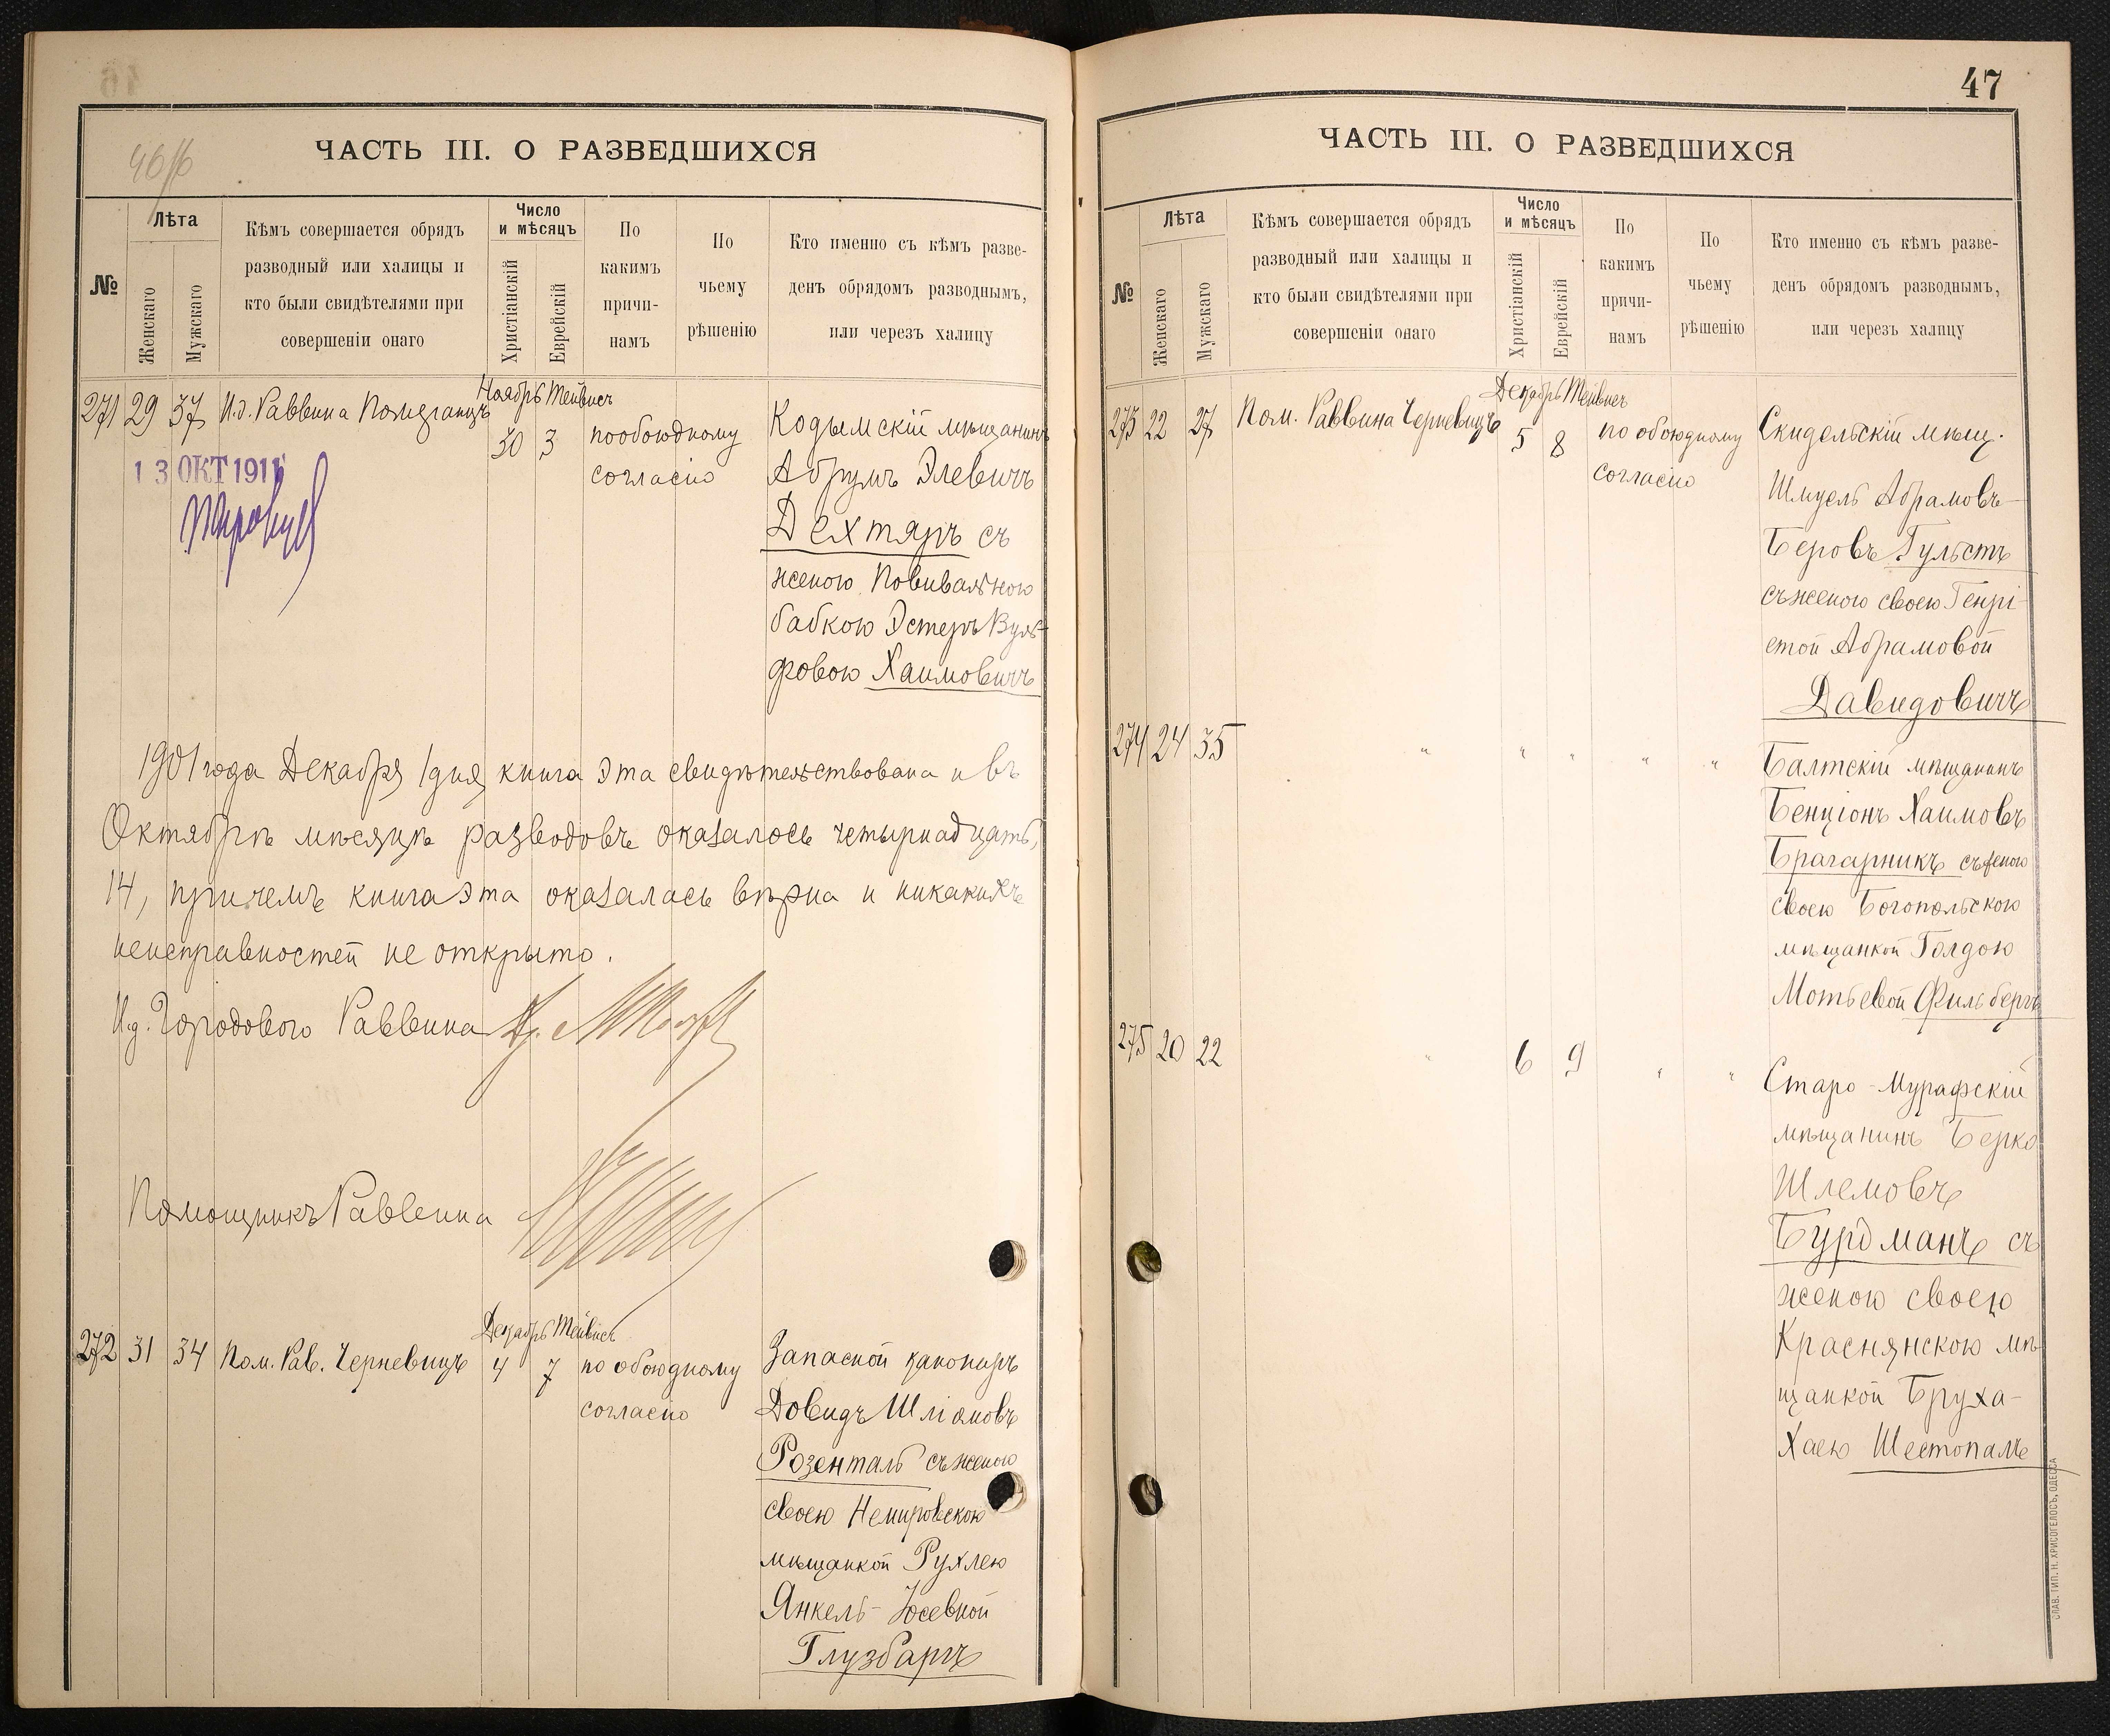 46
ЧАСТЬ III. О РАЗВЕДШИХСЯ
№
Лѣта
Женскаго
Мужскаго
Кѣмъ совершается обрядъ
разводный или халицы и
кто были свидѣтелями при
совершеніи онаго
Число
и мѣсяцъ
Христіанскій
Еврейскій
По
какимъ
причи-
намъ
По
чьему
рѣшенію
Кто именно съ кѣмъ разве-
денъ обрядомъ разводнымъ,
или черезъ халицу
Ноябрь Тейвисъ
271 29 37 И.д. Раввина Помяранцъ 30 3 пообоюдному
согласію
Кодымскій мѣщанинъ
Абрумъ Элевичъ
Дехтяръ съ
женою Повивальною
бабкою Эстеръ Вуль-
фовою Хаимовичъ
13 ОКТ 1911
1901 года Декабря 1 дня книга эта свидѣтельствована и въ
Октябрѣ мѣсяцѣ разводовъ оказалось четырнадцать,
14, причемъ книга эта оказалась вѣрна и никакихъ
неисправностей не открыто.
И.д. Городового Раввина
Помощникъ Раввина
Декабрь Тейвисъ
272 31 34 Пом. Рав. Черневицъ 4 7 по обоюдному
согласію
Запасной канониръ
Довидъ Шліомовъ
Розенталь съ женою
своею Немировскою
мѣщанкой Рухлею
Янкель-Іосевной
Глузбаргъ
47
ЧАСТЬ III. О РАЗВЕДШИХСЯ
№
Лѣта
Женскаго
Мужскаго
Кѣмъ совершается обрядъ
разводный или халицы и
кто были свидѣтелями при
совершеніи онаго
Число
и мѣсяцъ
Христіанскій
Еврейскій
По
какимъ
причи-
намъ
По
чьему
рѣшенію
Кто именно съ кѣмъ разве-
денъ обрядомъ разводнымъ,
или черезъ халицу
Декабрь Тейвисъ
273 22 27 Пом. Раввина Черневицъ 5 8 по обоюдному
согласію
Скидельскій мѣщ.
Шмуель Абрамовъ-
Беровъ Гульстъ
съ женою своею Генрі-
етой Абрамовой
Давидовичъ
274 24 35 " " " " "
Балтскій мѣщанинъ
Бенціонъ Хаимовъ
Брагарникъ съ женою
своею Богопольскою
мѣщанкой Голдою
Мотьевой Фильбергъ
275 20 22 " 6 9 " "
Старо-Мурафскій
мѣщанинъ Берко
Шлемовъ
Бурдманъ съ
женою своею
Краснянскою мѣ-
щанкой Бруха-
Хаею Шестопалъ
СЛАВ. ТИП. Н. ХРИСОГЕЛОСЪ, ОДЕССА